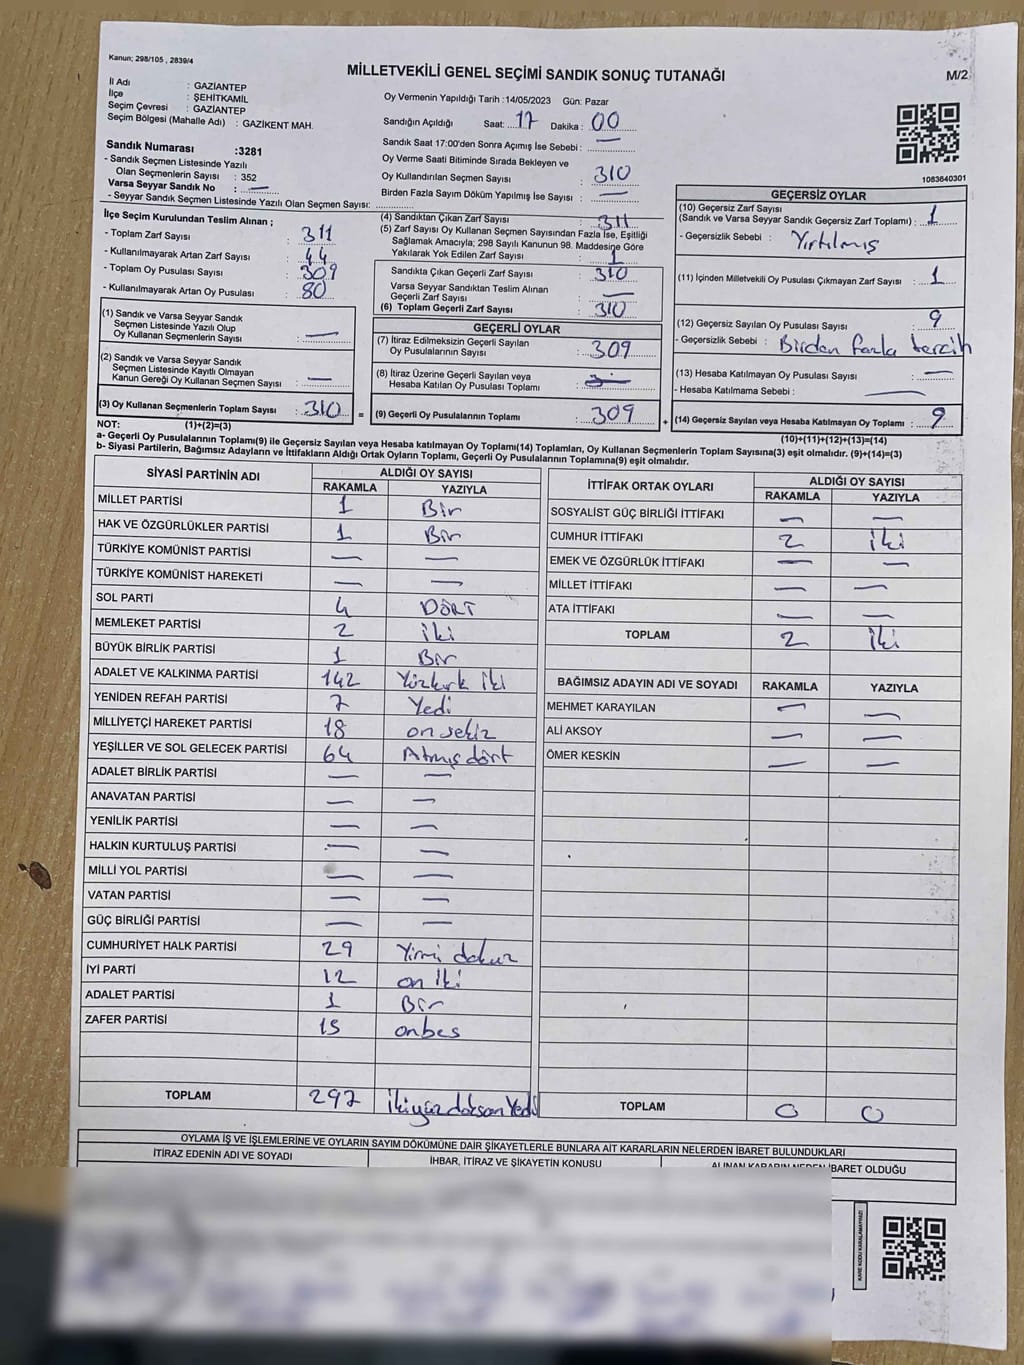 Kanun; 298/105 , 2839/4
MİLLETVEKİLİ GENEL SEÇİMİ SANDIK SONUÇ TUTANAĞI
M/2
İl Adı : GAZİANTEP
İlçe : ŞEHİTKAMİL
Seçim Çevresi : GAZİANTEP
Seçim Bölgesi (Mahalle Adı) : GAZİKENT MAH.
Sandık Numarası :3281
- Sandık Seçmen Listesinde Yazılı
Olan Seçmenlerin Sayısı : 352
Varsa Seyyar Sandık No : —
- Seyyar Sandık Seçmen Listesinde Yazılı Olan Seçmen Sayısı:
Oy Vermenin Yapıldığı Tarih :14/05/2023 Gün: Pazar
Sandığın Açıldığı Saat: 17 Dakika : 00
Sandık Saat 17:00'den Sonra Açımış İse Sebebi : —
Oy Verme Saati Bitiminde Sırada Bekleyen ve
Oy Kullandırılan Seçmen Sayısı : 310
Birden Fazla Sayım Döküm Yapılmış İse Sayısı : —
1083640301
İlçe Seçim Kurulundan Teslim Alınan ;
- Toplam Zarf Sayısı : 311
- Kullanılmayarak Artan Zarf Sayısı : 44
- Toplam Oy Pusulası Sayısı : 309
- Kullanılmayarak Artan Oy Pusulası : 80
(1) Sandık ve Varsa Seyyar Sandık
Seçmen Listesinde Yazılı Olup
Oy Kullanan Seçmenlerin Sayısı : —
(2) Sandık ve Varsa Seyyar Sandık
Seçmen Listesinde Kayıtlı Olmayan
Kanun Gereği Oy Kullanan Seçmen Sayısı : —
(3) Oy Kullanan Seçmenlerin Toplam Sayısı : 310 =
(4) Sandıktan Çıkan Zarf Sayısı : 311
(5) Zarf Sayısı Oy Kullanan Seçmen Sayısından Fazla İse, Eşitliği
Sağlamak Amacıyla; 298 Sayılı Kanunun 98. Maddesine Göre
Yakılarak Yok Edilen Zarf Sayısı : 1
Sandıkta Çıkan Geçerli Zarf Sayısı : 310
Varsa Seyyar Sandıktan Teslim Alınan
Geçerli Zarf Sayısı : —
(6) Toplam Geçerli Zarf Sayısı : 310
GEÇERLİ OYLAR
(7) İtiraz Edilmeksizin Geçerli Sayılan
Oy Pusulalarının Sayısı : 309
(8) İtiraz Üzerine Geçerli Sayılan veya
Hesaba Katılan Oy Pusulası Toplamı :
(9) Geçerli Oy Pusulalarının Toplamı : 309 +
GEÇERSİZ OYLAR
(10) Geçersiz Zarf Sayısı
(Sandık ve Varsa Seyyar Sandık Geçersiz Zarf Toplamı) : 1
- Geçersizlik Sebebi : Yırtılmış
(11) İçinden Milletvekili Oy Pusulası Çıkmayan Zarf Sayısı : 1
(12) Geçersiz Sayılan Oy Pusulası Sayısı : 9
- Geçersizlik Sebebi : Birden fazla tercih
(13) Hesaba Katılmayan Oy Pusulası Sayısı : —
- Hesaba Katılmama Sebebi : —
(14) Geçersiz Sayılan veya Hesaba Katılmayan Oy Toplamı : 9
NOT: (1)+(2)=(3) (10)+(11)+(12)+(13)=(14)
a- Geçerli Oy Pusulalarının Toplamı(9) ile Geçersiz Sayılan veya Hesaba katılmayan Oy Toplamı(14) Toplamları, Oy Kullanan Seçmenlerin Toplam Sayısına(3) eşit olmalıdır. (9)+(14)=(3)
b- Siyasi Partilerin, Bağımsız Adayların ve İttifakların Aldığı Ortak Oyların Toplamı, Geçerli Oy Pusulalarının Toplamına(9) eşit olmalıdır.
SİYASİ PARTİNİN ADI ALDIĞI OY SAYISI
RAKAMLA YAZIYLA
MİLLET PARTİSİ 1 Bir
HAK VE ÖZGÜRLÜKLER PARTİSİ 1 Bir
TÜRKİYE KOMÜNİST PARTİSİ — —
TÜRKİYE KOMÜNİST HAREKETİ — —
SOL PARTİ 4 DÖRT
MEMLEKET PARTİSİ 2 iki
BÜYÜK BİRLİK PARTİSİ 1 Bir
ADALET VE KALKINMA PARTİSİ 142 Yüzkırk iki
YENİDEN REFAH PARTİSİ 7 Yedi
MİLLİYETÇİ HAREKET PARTİSİ 18 on sekiz
YEŞİLLER VE SOL GELECEK PARTİSİ 64 Atmış dört
ADALET BİRLİK PARTİSİ — —
ANAVATAN PARTİSİ — —
YENİLİK PARTİSİ — —
HALKIN KURTULUŞ PARTİSİ — —
MİLLİ YOL PARTİSİ — —
VATAN PARTİSİ — —
GÜÇ BİRLİĞİ PARTİSİ — —
CUMHURİYET HALK PARTİSİ 29 Yirmi dokuz
İYİ PARTİ 12 on iki
ADALET PARTİSİ 1 Bir
ZAFER PARTİSİ 15 onbes
TOPLAM 297 ikiyüzdoksan Yedi
İTTİFAK ORTAK OYLARI ALDIĞI OY SAYISI
RAKAMLA YAZIYLA
SOSYALİST GÜÇ BİRLİĞİ İTTİFAKI — —
CUMHUR İTTİFAKI 2 iki
EMEK VE ÖZGÜRLÜK İTTİFAKI — —
MİLLET İTTİFAKI — —
ATA İTTİFAKI — —
TOPLAM 2 iki
BAĞIMSIZ ADAYIN ADI VE SOYADI RAKAMLA YAZIYLA
MEHMET KARAYILAN — —
ALİ AKSOY — —
ÖMER KESKİN — —
TOPLAM 0 0
OYLAMA İŞ VE İŞLEMLERİNE VE OYLARIN SAYIM DÖKÜMÜNE DAİR ŞİKAYETLERLE BUNLARA AİT KARARLARIN NELERDEN İBARET BULUNDUKLARI
İTİRAZ EDENİN ADI VE SOYADI İHBAR, İTİRAZ VE ŞİKAYETİN KONUSU ALINAN KARARIN NEDEN İBARET OLDUĞU
KARE KODU KARALAMAYINIZ